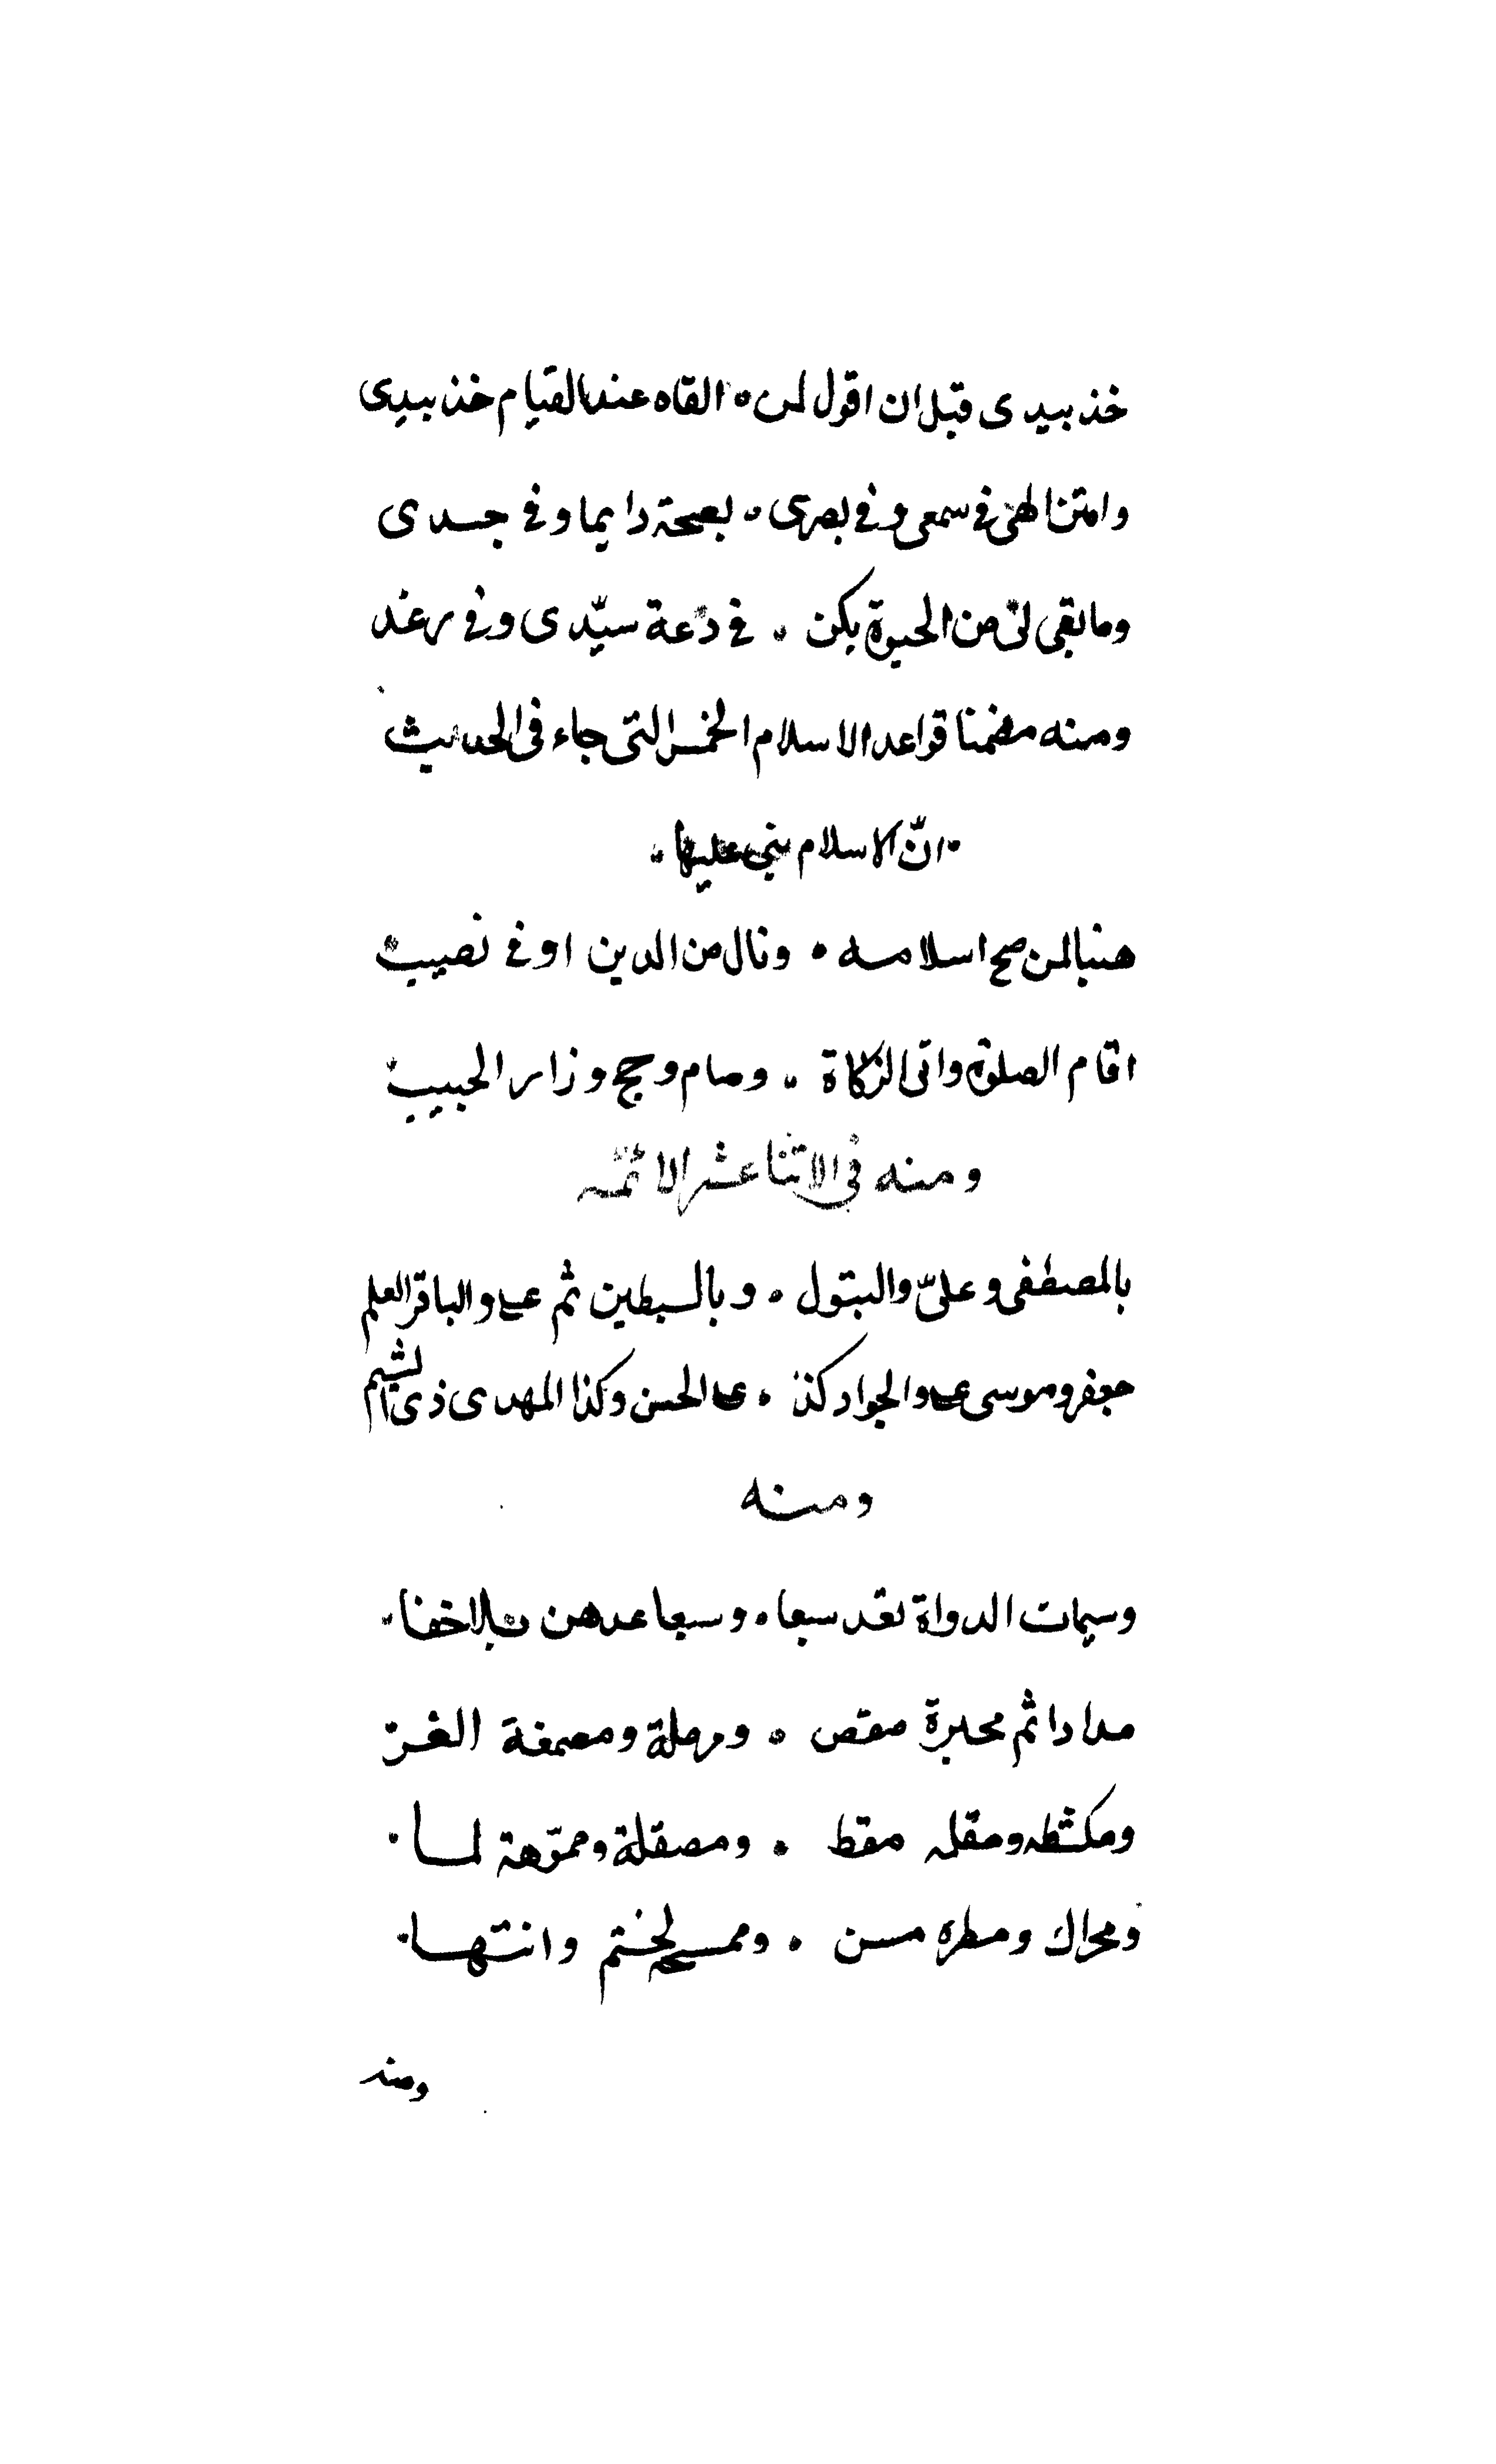 خذ بيدى قبل ان اقول لمن ۰ القاه عند القيام خذ بيدى
وامتن الهى فى سمعى وفى بصرى ۰ بصحة دايما وفى جسدى
وما بقى لى من الحيوة يكن ۰ فى دعة سيّدى وفى رغد
ومنه مضمنا قواعد الاسلام الخمس التى جاء فى الحديث
۰ انّ الاسلام بنى عليها ۰
هنيا لمن صح اسلامه ۰ ونال من الدين اوفى نصيب
اقام الصلوة واتى الزكاة ۰ وصام وحج وزار الحبيب
ومنه فى الاثنا عشر الائمه
بالمصطفى وعلىّ والبتول ۰ وبالسبطين ثم على والباقر العلم
جعفر وموسى على والجواد كذا ۰ على الحسن وكذا المهدى ذى الشيم
ومنه
وسيمات الدواة تعد سبعا ۰ وسبعا عدهن بلا خفا ۰
مدادا ثم محبرة مقص ۰ ومرملة ومصمغة الغر
ومكشطه ومقلمه مقط ۰ ومصقلة ومموّهة لما ۰
ومحراك ومسطره مسن ۰ وممسحه لختم وانتها ۰
ومنه